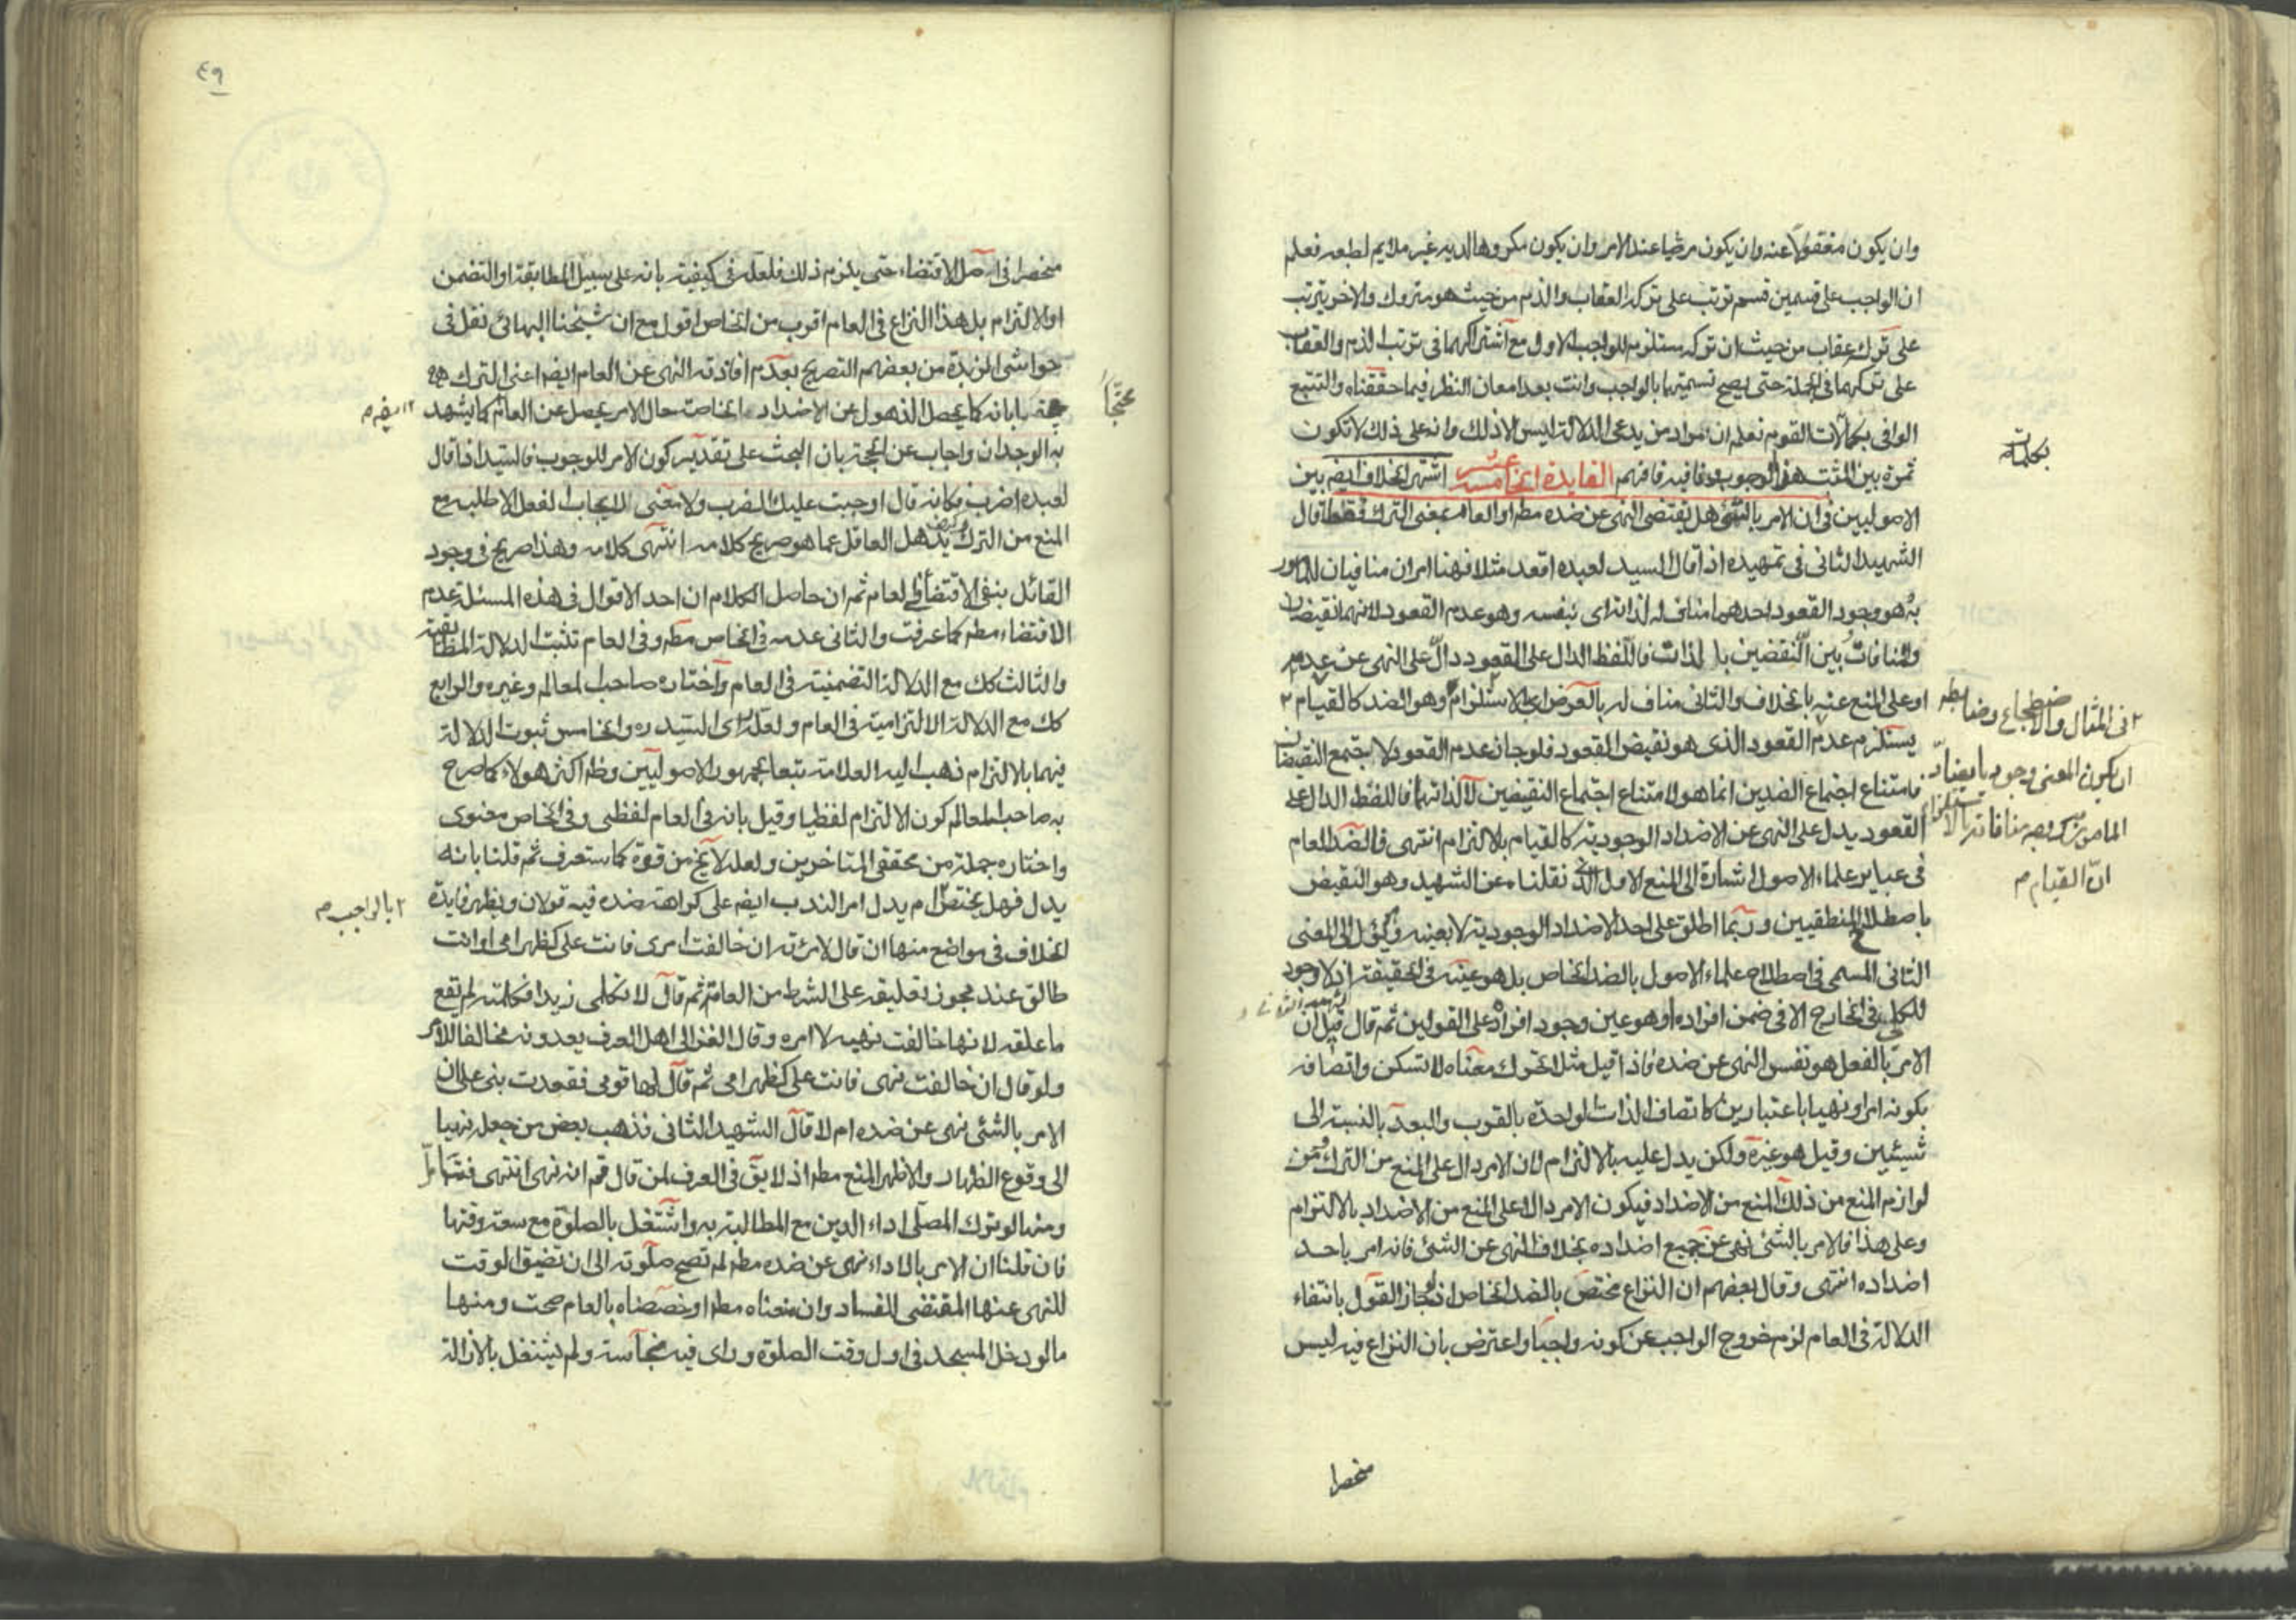 وان يكون مغفولا عنه وان يكون مرضيا عند الامر وان يكون مكروها لديه غير ملايم لطبعه فعلم
ان الواجب على قسمين قسم ترتب على تركه العقاب والذم من حيث هو متروك والاخر يترتب
على تركه عقاب من حيث ان تركه مستلزم للواجب الاول مع اشتراكهما فى ترتب الذم والعقاب
على تركهما فى الجملة حتى يصح تسميتها بالواجب وانت بعد امعان النظر فيما حققناه والتتبع
الوافى بكمالات القوم تعلم ان مراد من يدعى الدلالة ليس الا ذلك وانه على ذلك لا تكون
بكلمات
ثمرة بين المثبت هذا الوجوب ونافيه فافهم الفايدة الخامسة عشر اشتهر الخلاف ايضا بين
الاصوليين فى ان الامر بالشئ هل يقتضى النهى عن ضده مطم او العام بمعنى الترك فقط قال
الشهيد الثانى فى تمهيده اذا قال السيد لعبده اقعد مثلا فهنا امران منافيان للمامور
به هو وجود القعود احدهما مناف له لذاته اى بنفسه وهو عدم القعود لانهما نقيضان
والمنافات بين النقضين بالذات فاللفظ الدال على القعود دال على النهى عن عدمه
او على المنع عنه بالخلاف والثانى مناف له بالعرض اى الاستلزام وهو الضد كالقيام ٢
٢ فى المثال والاضطجاع وضابطه
ان يكون المعنى وجوديا يضاد
المامور به ووجه منافاته بالاستلزام
ان القيام م
يستلزم عدم القعود الذى هو نقيض القعود فلو جاز عدم القعود لاجتمع النقيضان
فامتناع اجتماع الضدين انما هو لامتناع اجتماع النقيضين لا لذاتهما فاللفظ الدال على
القعود يدل على النهى عن الاضداد الوجودية كالقيام بالالتزام انتهى فالضد العام
فى عباير علماء الاصول اشارة الى المنع الاول الذى نقلناه عن الشهيد وهو النقيض
باصطلاح المنطقيين وربما اطلق على احد الاضداد الوجودية لا بعينه ويؤل الى المعنى
الثانى المسمى فى اصطلاح علماء الاصول بالضد الخاص بل هو عينه فى الحقيقة اذ لا وجود
للكلى فى الخارج الا فى ضمن افراده او هو عين وجود افراده على القولين ثم قال قيل ان
الامر بالفعل هو نفس النهى عن ضده فاذا قيل مثلا تحرك معناه لا تسكن واتصافه
بكونه امرا ونهيا باعتبارين كاتصاف الذات الواحدة بالقرب والبعد بالنسبة الى
شيئين وقيل هو غيره ولكن يدل عليه بالالتزام لان الامر دال على المنع من الترك ومن
لوازم المنع من ذلك المنع من الاضداد فيكون الامر دالا على المنع من الاضداد بالالتزام
وعلى هذا فالامر بالشئ نهى عن جميع اضداده بخلاف النهى عن الشئ فانه امر باحد
اضداده انتهى وقال بعضهم ان النزاع مختص بالضد الخاص اذ لو جاز القول بانتفاء
الدلالة فى العام لزم خروج الواجب عن كونه واجبا واعترض بان النزاع فيه ليس
منحصرا
٤٩
منحصرا فى اصل الاقتضاء حتى يلزم ذلك فلعله فى كيفيته بانه على سبيل المطابقة او التضمن
او الالتزام بل هذا النزاع فى العام اقرب من الخاص اقول مع ان شيخنا البهائى نقل فى
حواشى الزبدة من بعضهم التصريح بعدم افادته النهى عن العام ايضا اعنى الترك
محتجا
بانه كما يحصل الذهول عن الاضداد الخاصة حال الامر يحصل عن العام كما يشهد
١٢ ايضا م
به الوجدان واجاب عن الحجة بان البحث على تقدير كون الامر للوجوب فالسيد اذا قال
لعبده اضرب فكانه قال اوجبت عليك الضرب ولا معنى للايجاب الفعل الا طلبه مع
المنع من الترك وكيف يذهل العاقل عما هو صريح كلامه انتهى كلامه وهذا صريح فى وجود
القائل بنفى الاقتضاء فى العام ثم ان حاصل الكلام ان احد الاقوال فى هذه المسئلة عدم
الاقتضاء مطم كما عرفت والثانى عدمه فى الخاص مطم وفى العام تثبت الدلالة المطابقية
والثالث كك مع الدلالة التضمنية فى العام واختاره صاحب المعالم وغيره والرابع
كك مع الدلالة الالتزامية فى العام ولعله راى السيد ره والخامس ثبوت الدلالة
فيهما بالالتزام ذهب اليه العلامة تبعا لجمهور الاصوليين وظم اكثر هولاء كما صرح
به صاحب المعالم كون الالتزام لفظيا وقيل بانه فى العام لفظى وفى الخاص معنوى
واختاره جملة من محققى المتاخرين ولعله لا يخ من قوة كما ستعرف ثم قلنا بانه
يدل فهل يختص ام يدل امر الندب ايضا على كراهة ضده فيه قولان ويظهر فايدة
٢ بالواجب م
الخلاف فى مواضع منها ان قال لامرئته ان خالفت امرى فانت على كظهر امى او انت
طالق عند مجوز تعليقه على الشرط من العامة ثم قال لا تكلمى زيدا فكلمته لم تقع
ما علقه لانها خالفت نهيه لا امره وقال الغزالى اهل العرف يعدونه مخالفا للامر
ولو قال ان خالفت نهى فانت على كظهر امى ثم قال لها قومى فقعدت بنى على ان
الامر بالشئ نهى عن ضده ام لا قال الشهيد الثانى فذهب بعض من جعله نهيا
الى وقوع الظهار والاظهر المنع مطم اذ لا يق فى العرف لمن قال قم انه نهى انتهى فتامل
ومنها لو ترك المصلى اداء الدين مع المطالبة به واشتغل بالصلوة مع سعة وقتها
فان قلنا ان الامر بالاداء نهى عن ضده مطم لم تصح صلوته الى ان تضيق الوقت
للنهى عنها المقتضى للفساد وان منعناه مطم او خصصناه بالعام صحت ومنها
ما لو دخل المسجد فى اول وقت الصلوة وراى فيه نجاسة ولم يشتغل بالازالة